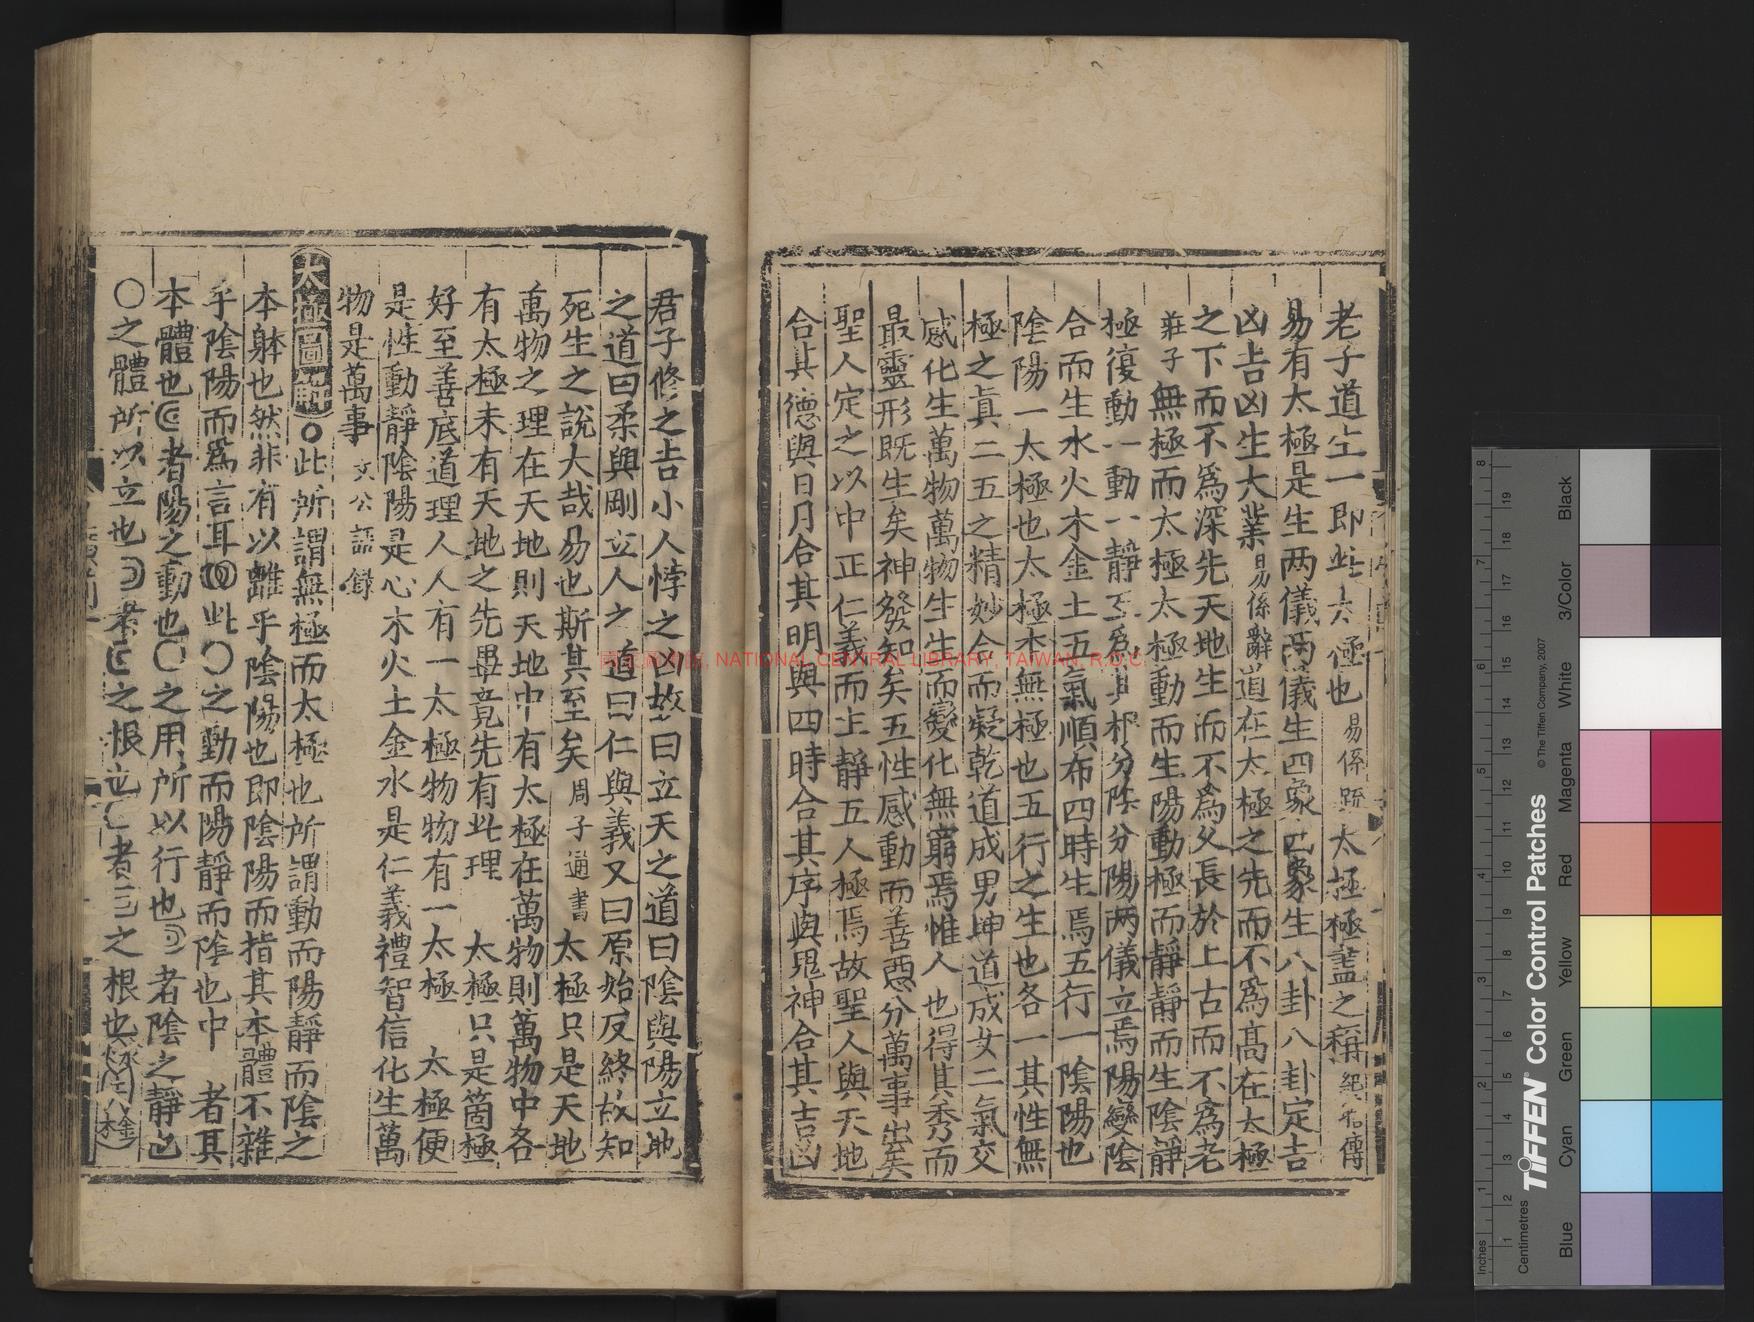 老子道生一即此太極也易係疏太極極盡之稱絕右傳
易有太極是生两儀两儀生四象四象生八卦八卦定吉
凶吉凶生大業易係辭道在太極之先而不爲高在太極
之下而不爲深先天地生而不爲父長於上古而不爲老
莊子無極而太極太極動而生陽動極而靜靜而生陰靜
極復動一動一靜互爲其根分陰分陽两儀立焉陽變陰
合而生水火木金土五氣順布四時生焉五行一陰陽也
陰陽一太極也太極本無極也五行之生也各一其性無
極之眞二五之精妙合而凝乾道成男坤道成女二氣交
感化生萬物萬物生生而變化無窮焉惟人也得其秀而
最靈形既生矣神發知矣五性感動而善惡分萬事出矣
聖人定之以中正仁義而主靜立人極焉故聖人與天地
合其德與日月合其明與四時合其序與鬼神合其吉凶
君子修之吉小人悖之凶故曰立天之道曰陰與陽立地
之道曰柔與剛立人之道曰仁與義又曰原始反終故知
死生之說大哉易也斯其至矣周子通書太極只是天地
萬物之理在天地則天地中有太極在萬物則萬物中各
有太極未有天地之先畢竟先有此理 太極只是箇極
好至善底道理人人有一太極物物有一太極 太極便
是性動靜陰陽是心木火土金水是仁義禮智信化生萬
物是萬事文公語錄
太極圖解○此所謂無極而太極也所謂動而陽靜而陰之
本躰也然非有以離乎陰陽也即陰陽而指其本體不雜
乎陰陽而爲言耳此○之動而陽靜而陰也中 者其
本體也者陽之動也○之用所以行也者陰之靜也
○之體所以立也者之根也者之根也
國家圖書館, NATIONAL CENTRAL LIBRARY, TAIWAN, R.O.C.
TIFFEN Color Control Patches © The Tiffen Company, 2007
Centimetres
Inches
Blue Cyan Green Yellow Red Magenta White 3/Color Black